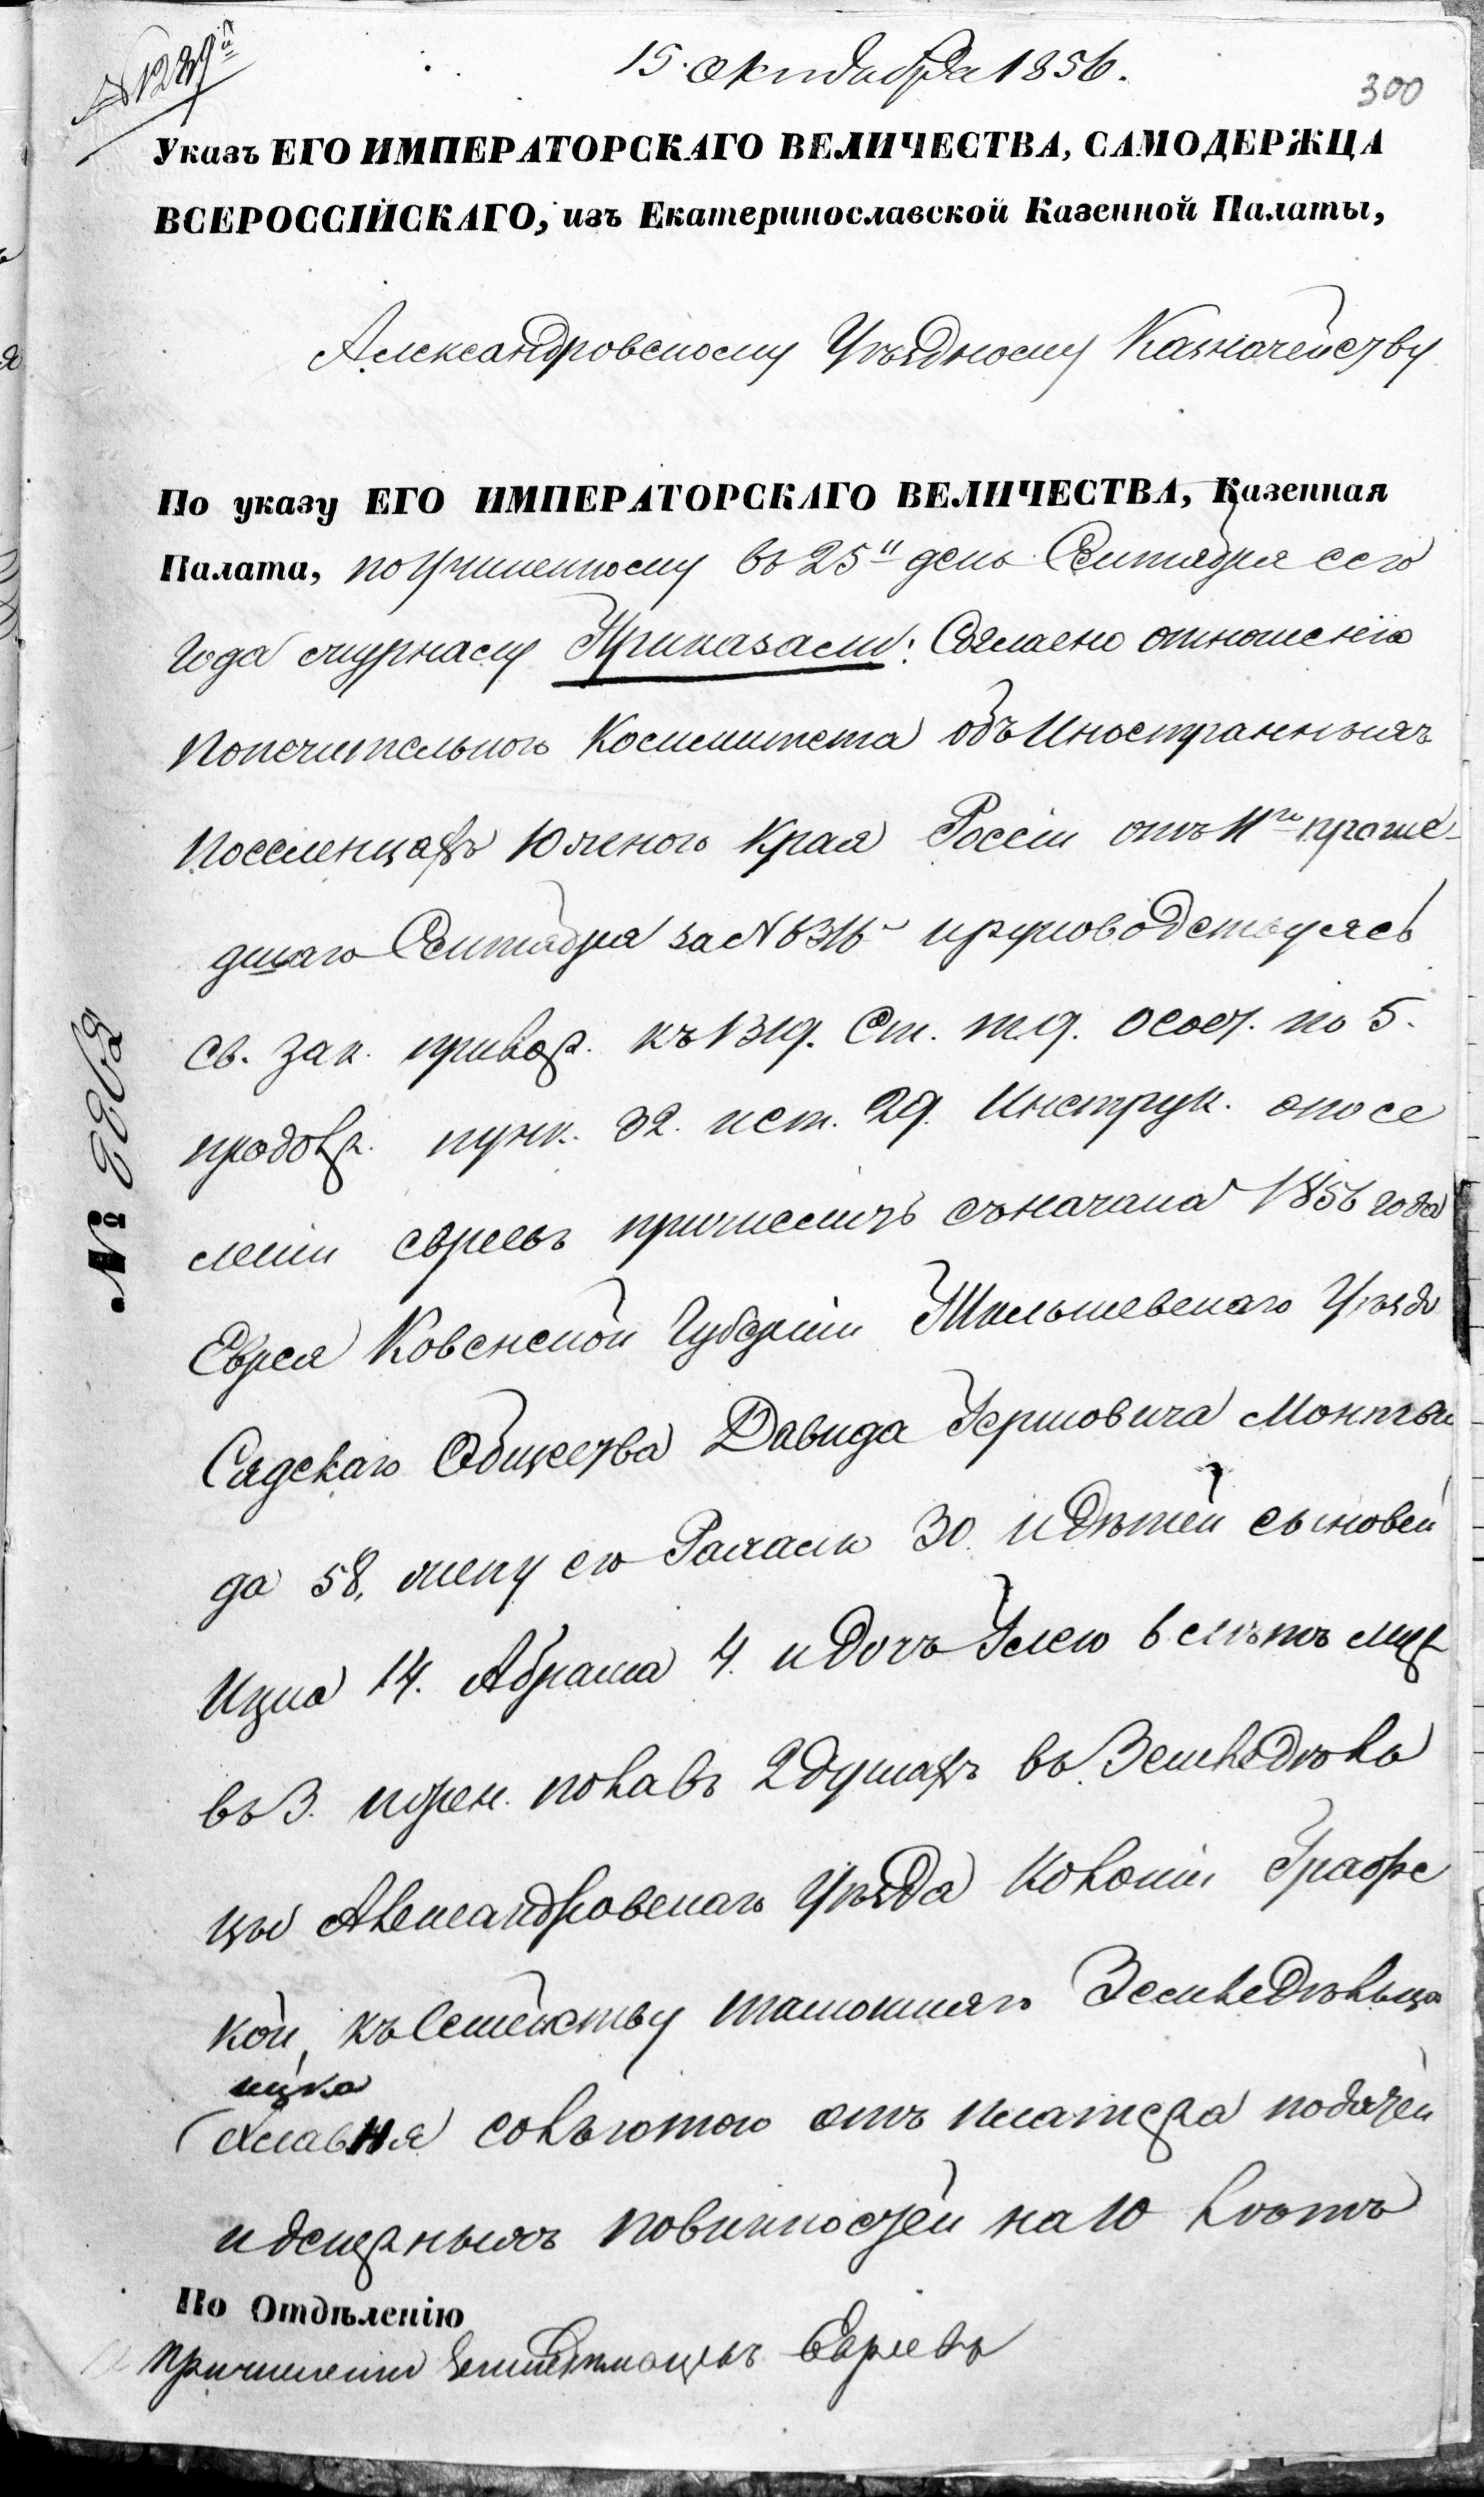 15. октября 1856.
300
Указъ ЕГО ИМПЕРАТОРСКАГО ВЕЛИЧЕСТВА, САМОДЕРЖЦА
ВСЕРОССІЙСКАГО, изъ Екатеринославской Казенной Палаты,
Александровскому Уѣздному Казначейству
По указу ЕГО ИМПЕРАТОРСКАГО ВЕЛИЧЕСТВА, Казенная
Палата, по учиненному въ 25й день Сентября сего
года журналу Приказали: Согласно отношенію
Попечительного Комитета объ Иностранныхъ
Поселенцахъ Южного Края Россіи отъ 11го проше-
дшаго Сентября за № и руководствуясь
св. зак. къ 1319. Ст. т. 9. о сост. по 5.
продол. пунк. 32. и ст. 29. Инструк. о посе
леніи евреевъ причислить съ начала 1856 года
Еврея Ковенской Губерніи Тельшевскаго Уѣзда
Сядскаго Общества Давида Гершовича
да 58, жену его 30. и дѣтей сыновей
Ицка 14. Абрама 4. и дочь 6 лѣтъ
въ 3. полавъ 2 душахъ въ Земледѣль
цы Александровскаго Уѣзда Колоніи Графс
кой, къ Семейству тамошняго Земледѣльца
ицка
съ льготою отъ платежа податей
и денежныхъ повинностей на 10 лѣтъ
По Отдѣленію
причисленіи Земледѣльцевъ Евреевъ
№